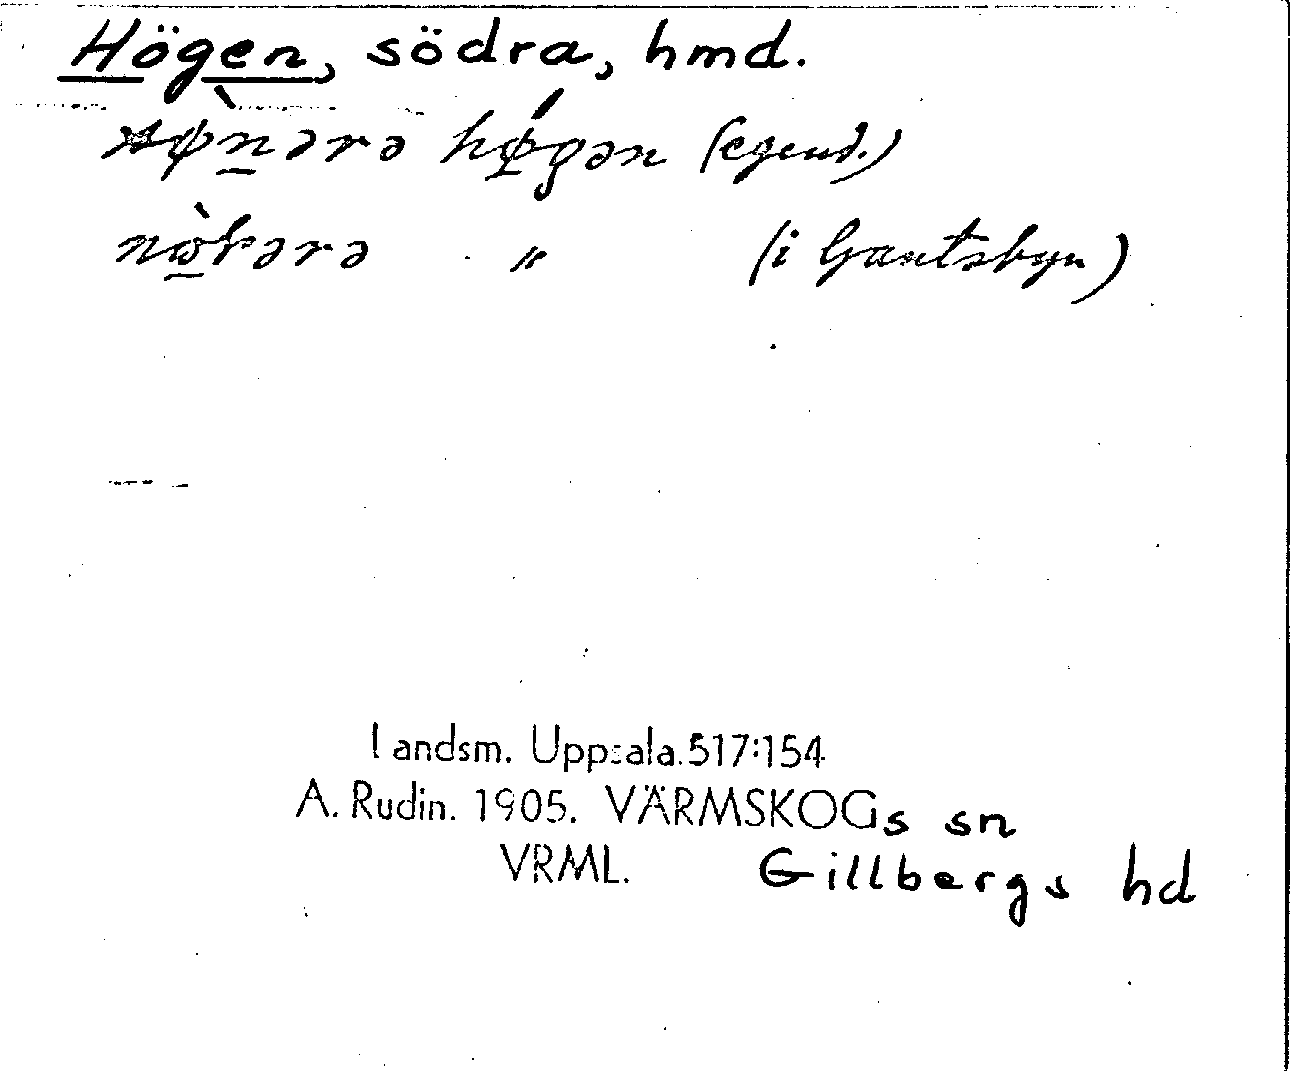 Högen, södra, hmd.
sø̀nərə hǿgən (egend.)
nòkərə " (i Gautsbyn)
Landsm. Uppsala.517:154
A. Rudin. 1905. VÄRMSKOGs sn
VRML. Gillbergs hd